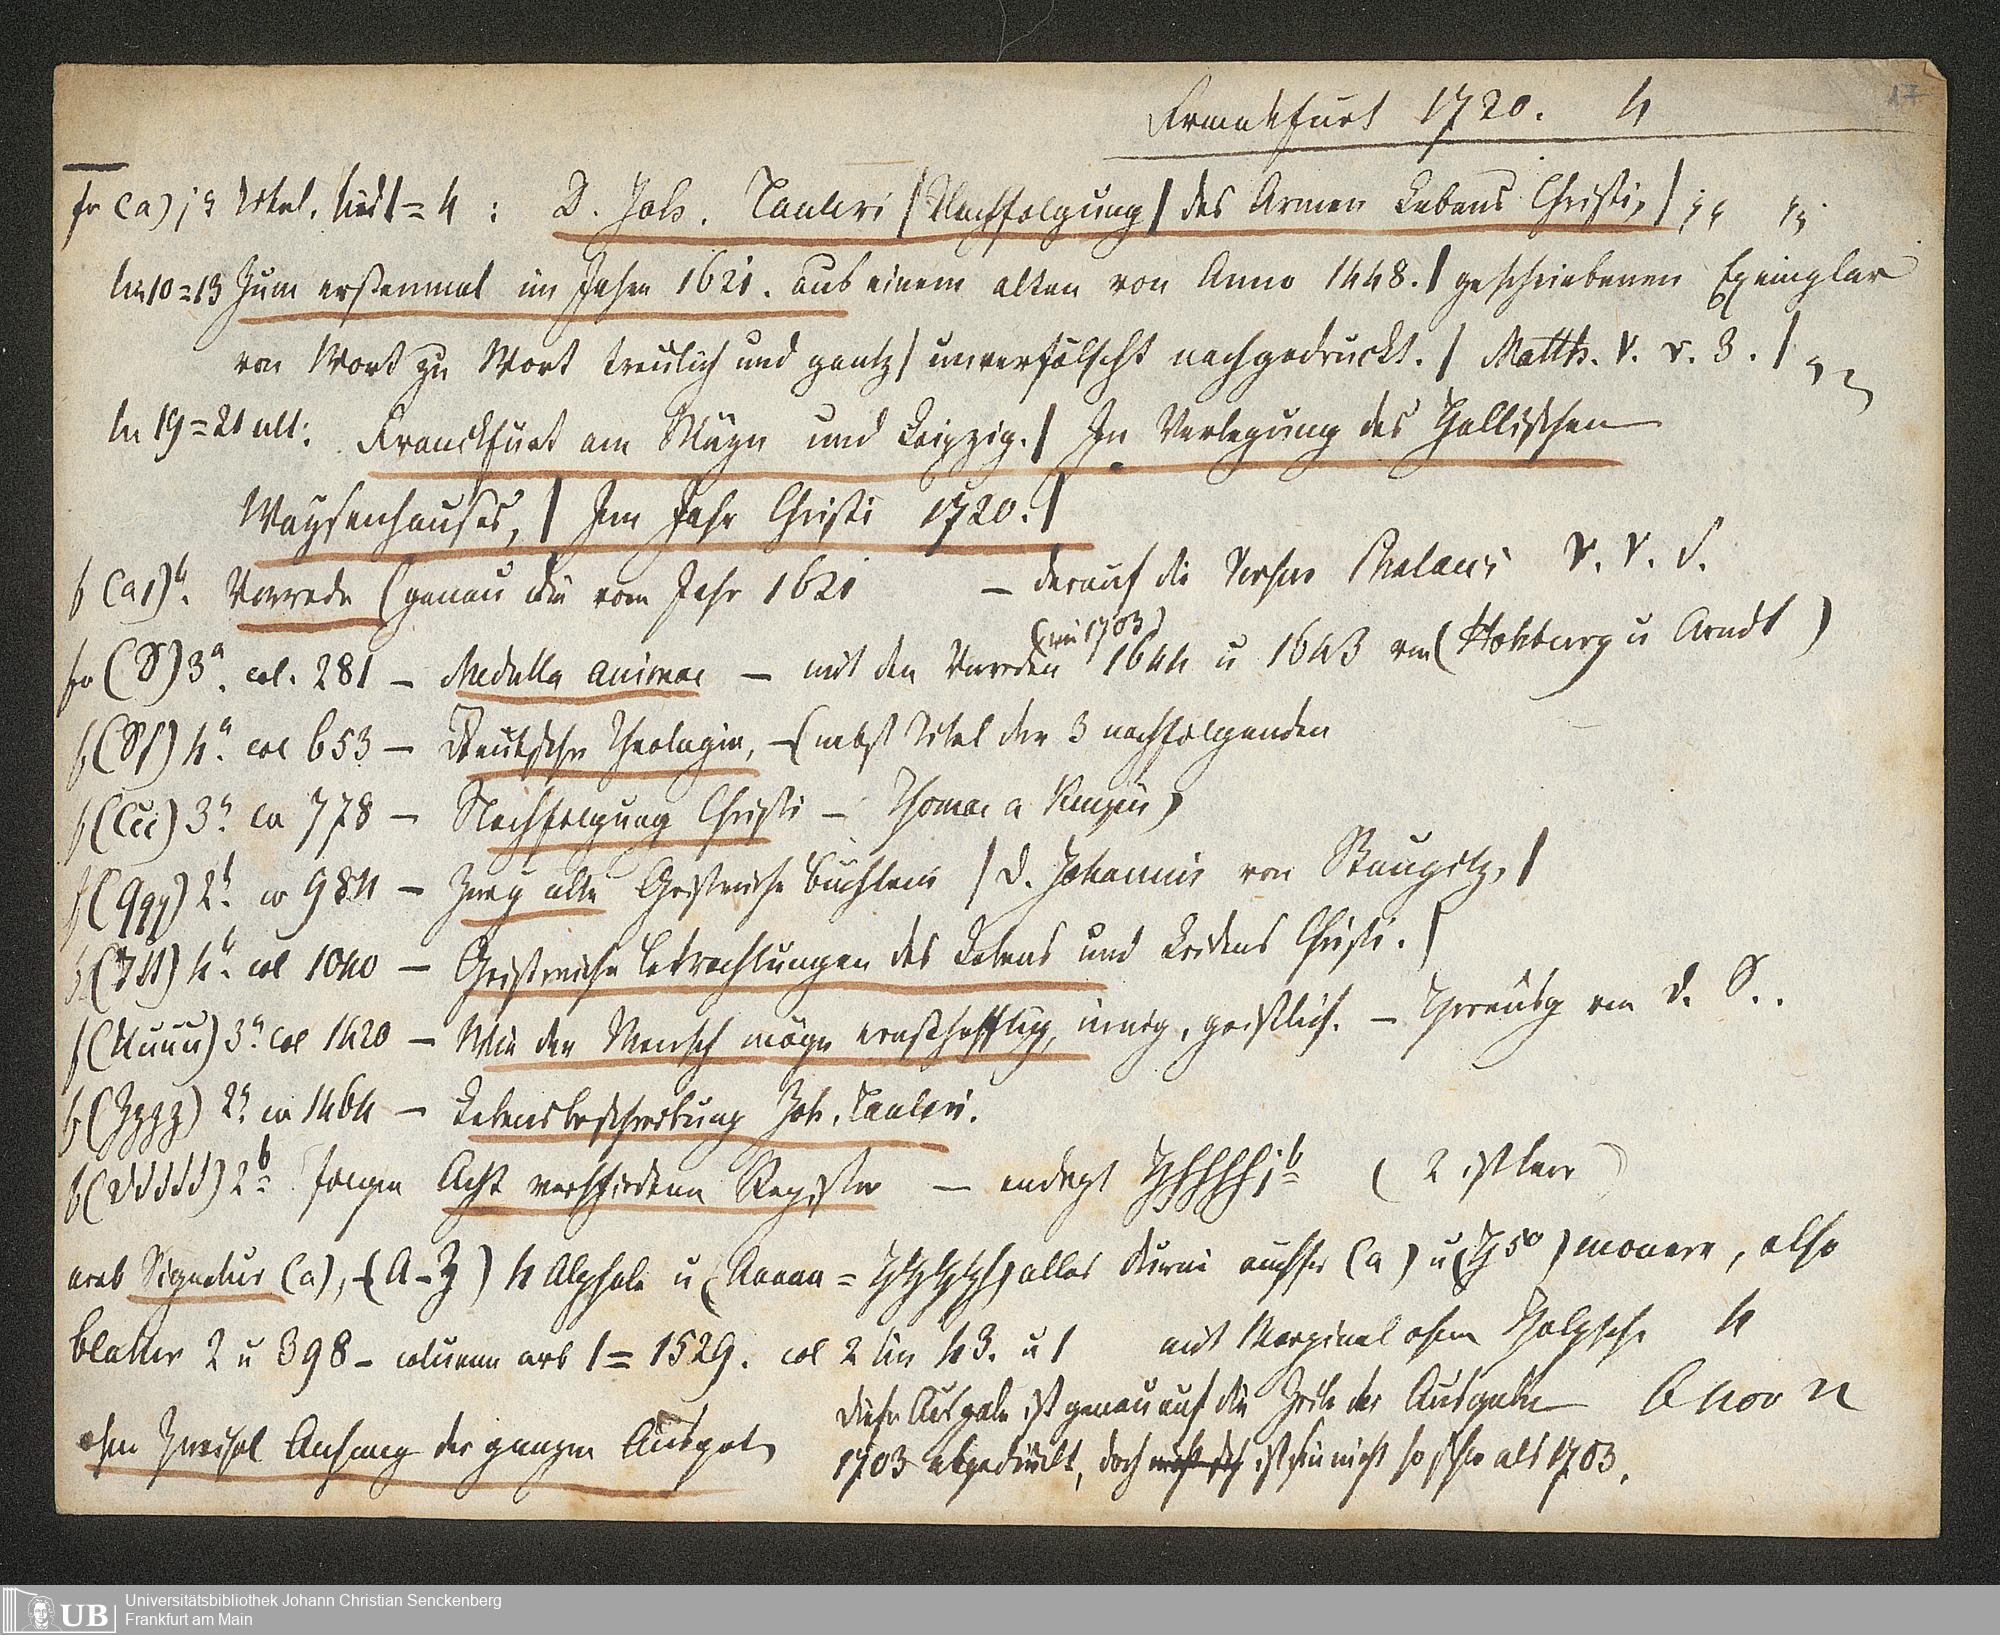 17
Frankfurt 1720. 4
fo (a) j a Titel. lin 1=4 : D. Joh. Tauleri | Nachfolgung | des Armen Lebens Christi, |
lin 10=13 Zum erstenmal im Jahre 1621. aus einem alten von Anno 1448. | geschriebenen Exemplar
von Wort zu Wort treulich und gantz | unverfälscht nachgedruckt. | Matth. V. v. 3. |
lin 19=21 ult: Franckfurt am Mäyn und Leipzig. | In Verlegung des Hallischen
Waysenhauses, | Im Jahr Christi 1720. |
f (a1) b. Vorrede (genau die vom Jahr 1621 – darauf die Verse V. V. S.
(wie 1703)
fo (S) 3 a. col. 281 – Medulla animae – mit den Vorreden 1644 u 1643 von (Hohburg u Arndt)
f (Sf) 4 a. col 653 – Deutsche Theologia, – (nebst Titel der 3 nachfolgenden
f (Ccc) 3 a. co 778 – Nachfolgung Christi – Thomae a Kempis)
f (qqq) 2 b. co 984 – Zwey alte Geistreiche Büchlein | D. Johannis von Staupitz, |
f (ttt) 4 b. col 1040 – Geistreiche Betrachtungen des Lebens und Leidens Christi. |
f (Uuuu) 3 a. col 1420 – Wie der Mensch möge ernsthafftig, innig, geistlich. – von D. S..
f (Zzzz) 2 a. co 1464 – Lebensbeschreibung Joh. Tauleri.
f (ddddd) 2 b folgen Acht verschiedene Register – endigt Hhhhhh j b (2 ist leer)
arab Signatur (a), – (A–Z) 4 Alphabe u (Aaaaa = alles außer (a) u , also
Blätter 2 u 398 – columnen arb 1=1529. col 2 lin 43. u 1 mit Marginal ohne Holzsch. 4
diese Ausgabe ist genau auf die Zeile der Ausgabe
1703 abgedruckt, doch ist sie nicht so schön als 1703.
ohne Zweifel Anhang der ganzen Ausgabe
Universitätsbibliothek Johann Christian Senckenberg
UB Frankfurt am Main